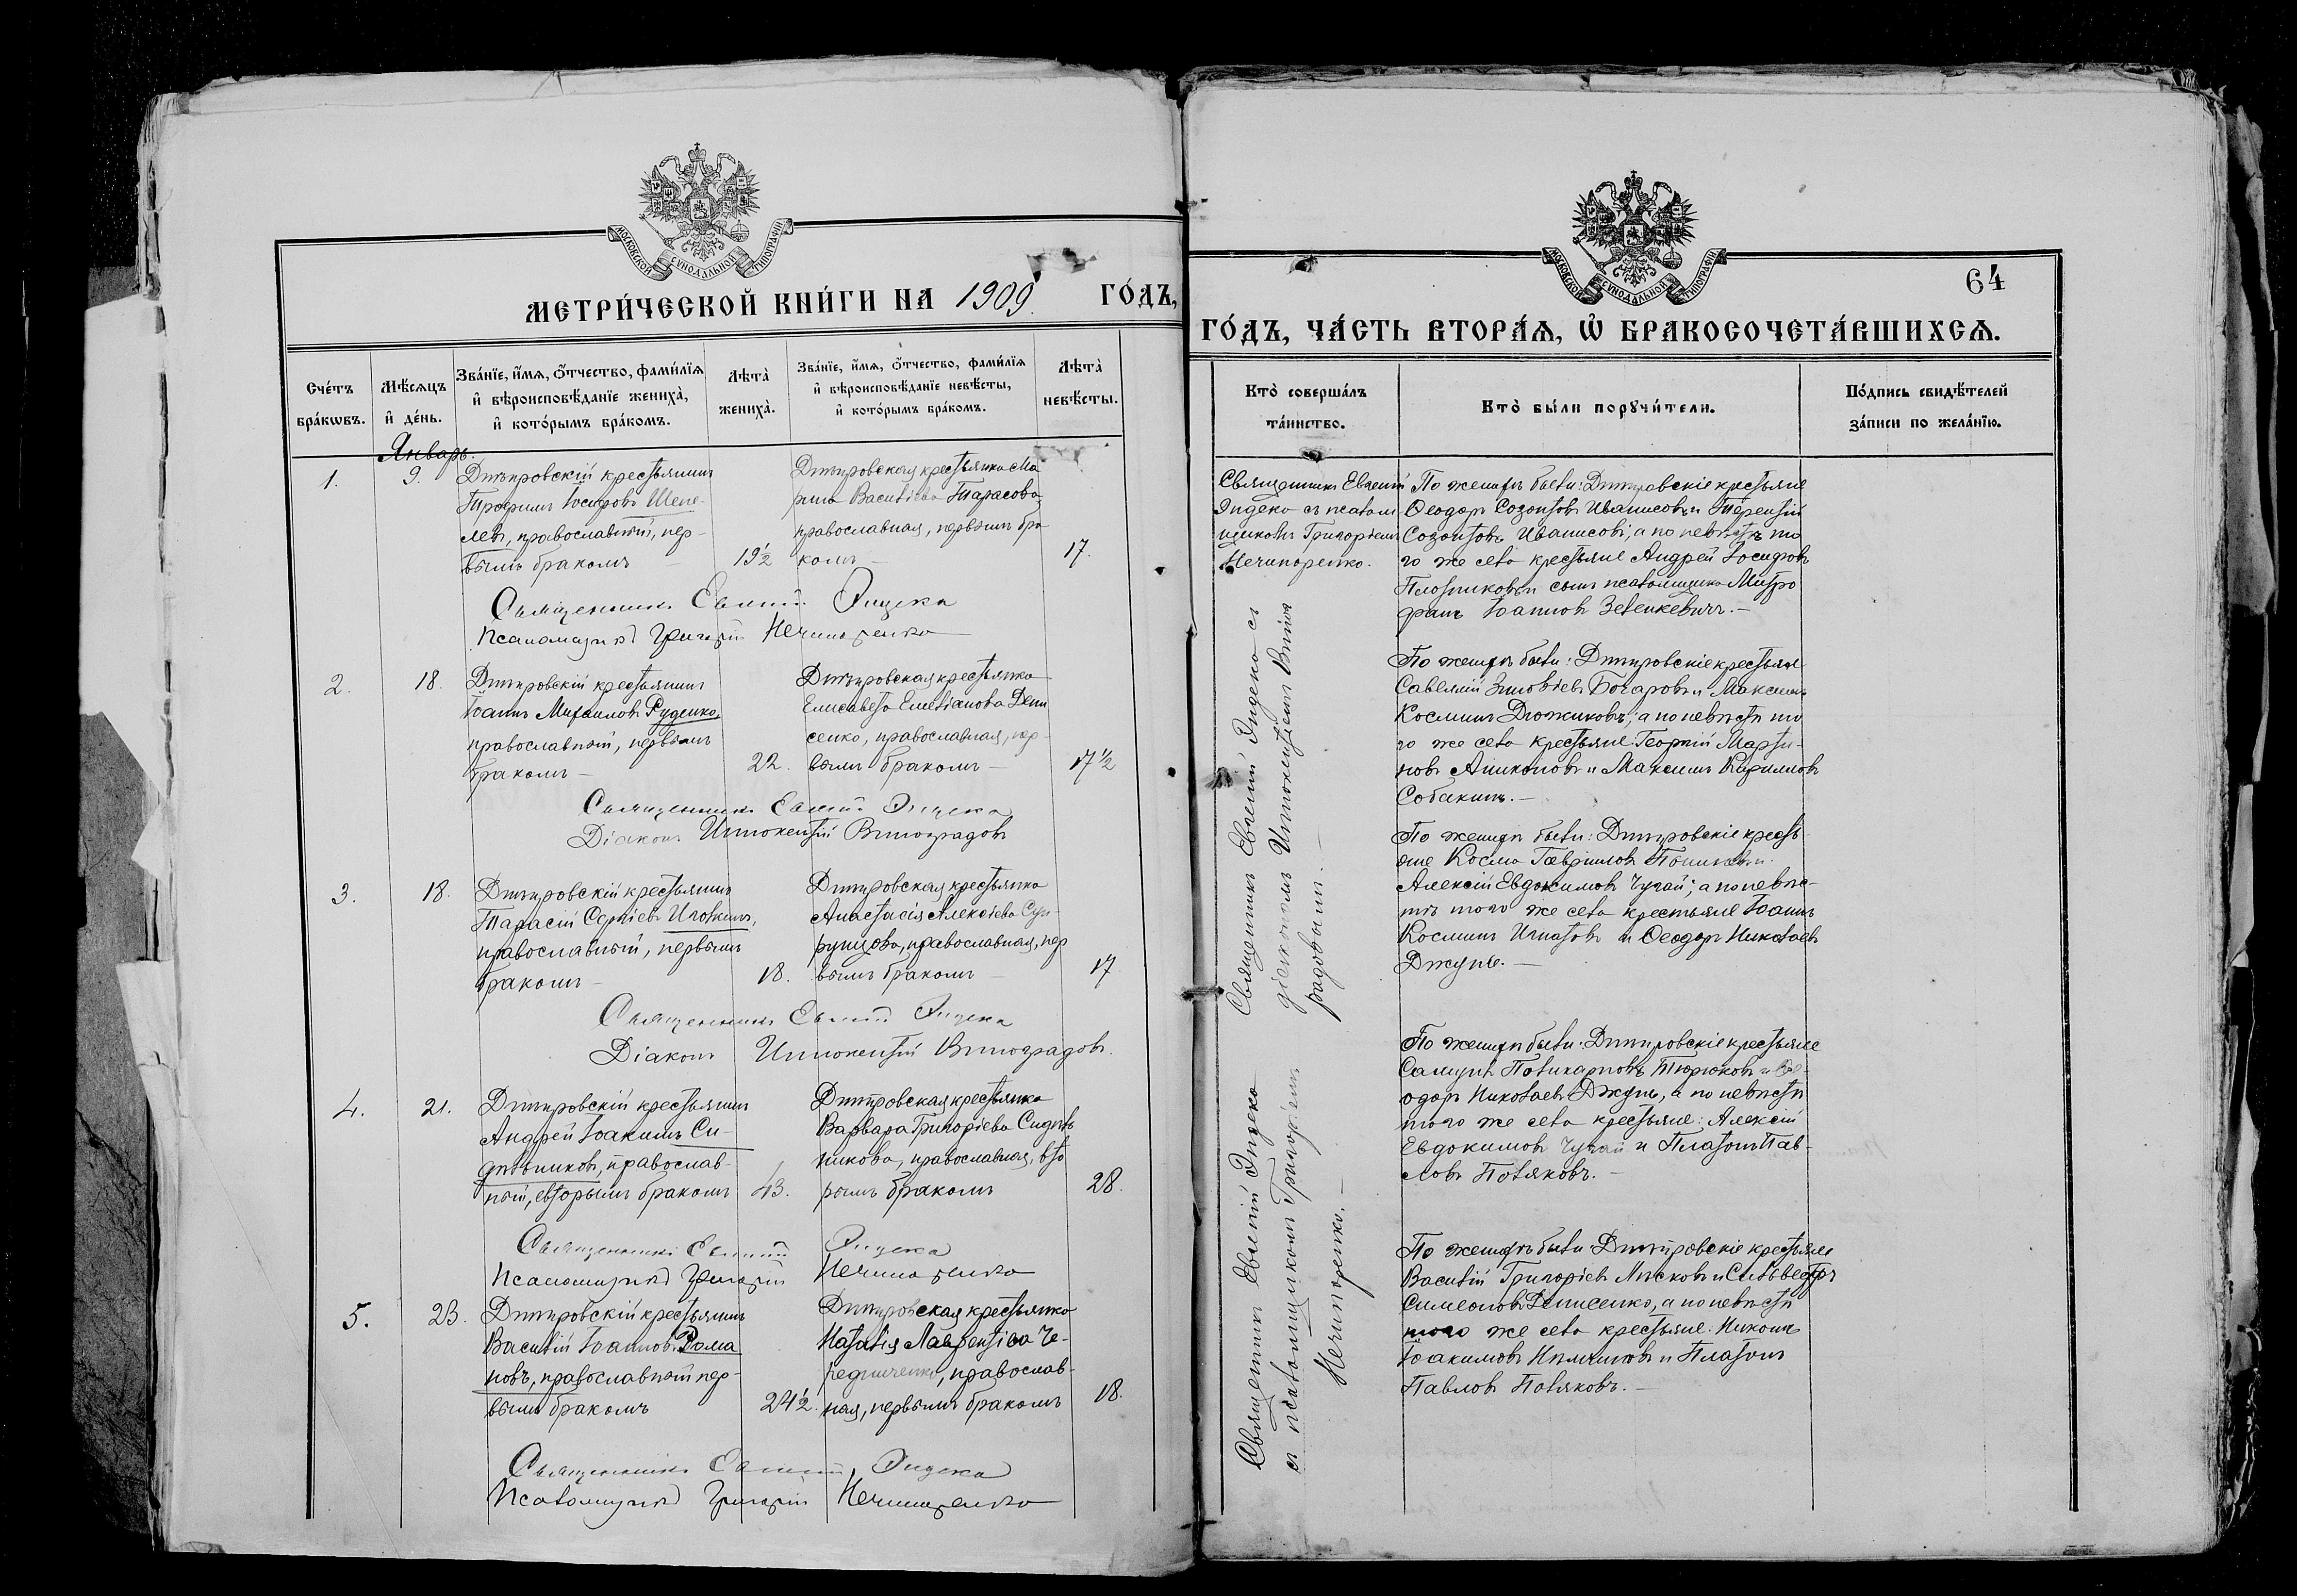 МОСКОВСКОЙ СѴНОДАЛЬНОЙ ТИПОГРАФІИ
МЕТРИ́ЧЕСКОЙ КНИ́ГИ НА 1909 ГО́ДЪ,
Сче́тъ бра́кѡвъ.
Мѣ́сѧцъ и҆ де́нь.
Зва́нїе, и҆́мѧ, ѻ҆́тчество, фами́лїѧ и҆ вѣроисповѣ́данїе жениха̀, и҆ кото́рымъ бра́комъ.
Лѣта̀ жениха̀.
Зва́нїе, и҆́мѧ, ѻ҆́тчество, фами́лїѧ и҆ вѣроисповѣ́данїе невѣ́сты, и҆ кото́рымъ бра́комъ.
Лѣта̀ невѣ́сты.
Январь.
1.
9.
Дмитровскій крестьянинъ
Трофимъ Іосифовъ Шепе-
левъ, православный, пер-
вымъ бракомъ —
19½
Дмитровская крестьянка Ма
рия Васильева Тарасова,
православная, первымъ бра
комъ —
17.
Священникъ Евгеній Эндека
Псаломщикъ Григорій Нечипоренко
2.
18.
Дмитровскій крестьянинъ
Іоаннъ Михаиловъ Руденко,
православный, первымъ
бракомъ —
22.
Дмитровская крестьянка
Елисавета Емельянова Дени
сенко, православная, пер-
вымъ бракомъ —
17½
Священникъ Евгеній Эндека
Діаконъ Иннокентій Виноградовъ
3.
18.
Дмитровскій крестьянинъ
Тарасій Сергіевъ
православный, первымъ
бракомъ —
18.
Дмитровская крестьянка
Анастасія Алексіева
православная, пер
вымъ бракомъ —
17
Священникъ Евгеній Эндека
Діаконъ Иннокентій Виноградовъ.
4.
21.
Дмитровскій крестьянинъ
Андрей Іоакимъ Си-
дѣльниковъ, православ-
ный, вторымъ бракомъ
43.
Дмитровская крестьянка
Варвара Григоріева Сидѣль
никова, православная, вто
рымъ бракомъ
28.
Священникъ Евгеній Эндека
Псаломщикъ Григорій Нечипоренко
5.
23.
Дмитровскій крестьянинъ
Василій Іоанновъ Рома
новъ, православный пер-
вымъ бракомъ
24½.
Дмитровская крестьянка
Наталія Лаврентіева Че-
редниченко, православ-
ная, первымъ бракомъ
18.
Священникъ Евгеній Эндека
Псаломщикъ Григорій Нечипоренко
МОСКОВСКОЙ СѴНОДАЛЬНОЙ ТИПОГРАФІИ
64
ГО́ДЪ, ЧА́СТЬ ВТОРА́Ѧ, Ѽ БРАКОСОЧЕТА́ВШИХСѦ.
Кто̀ соверша́лъ та́инство.
Кто̀ бы́ли порꙋчи́тели.
По́дпись свидѣ́телей за́писи по жела́нїю.
Священникъ Евгеній
Эндека съ псалом
щикомъ Григоріемъ
Нечипоренко.
По женихѣ были: Дмитровскіе крестьяне
Ѳеодоръ Созонтовъ Иванисовъ и Терентій
Созонтовъ Иванисовъ, а по невѣстѣ то
го же села крестьяне Андрей Іосифовъ
Плотниковъ и сынъ псаломщика Митро
фанъ Іоанновъ Зеленкевичъ. —
Священникъ Евгеній Эндека съ
діакономъ Иннокентіемъ Виног
радовымъ. —
По женихѣ были: Дмитровскіе крестьяне
Савелій Зиновіевъ Бочаровъ и Максимъ
Косминъ Дюжиковъ; а по невѣстѣ то
го же села крестьяне Георгій Марти-
новъ и Максимъ Кирилловъ
Собакинъ. —
По женихѣ были: Дмитровскіе кресть
яне Косма Гавриловъ
Алексій Евдокимовъ Чугай; а по невѣс-
тѣ того же села крестьяне Іоаннъ
Косминъ Игнатовъ и Ѳеодоръ Николаевъ
Джунь. —
Священникъ Евгеній Эндека
съ псаломщикомъ Григоріемъ
Нечипоренко. —
По женихѣ были: Дмитровскіе крестьяне
Самуилъ Поликарповъ Тюрюковъ и Ѳе-
одоръ Николаевъ Джунь, а по невѣстѣ
того же села крестьяне: Алексій
Евдокимовъ Чугай и Платонъ Пав-
ловъ Поляковъ. —
По женихѣ были Дмитровскіе крестьяне
Василій Григоріевъ Лысковъ и Сильвестръ
Симеоновъ Денисенко, а по невѣстѣ
того же села крестьяне: Никонъ
Іоакимовъ и Платонъ
Павловъ Поляковъ. —